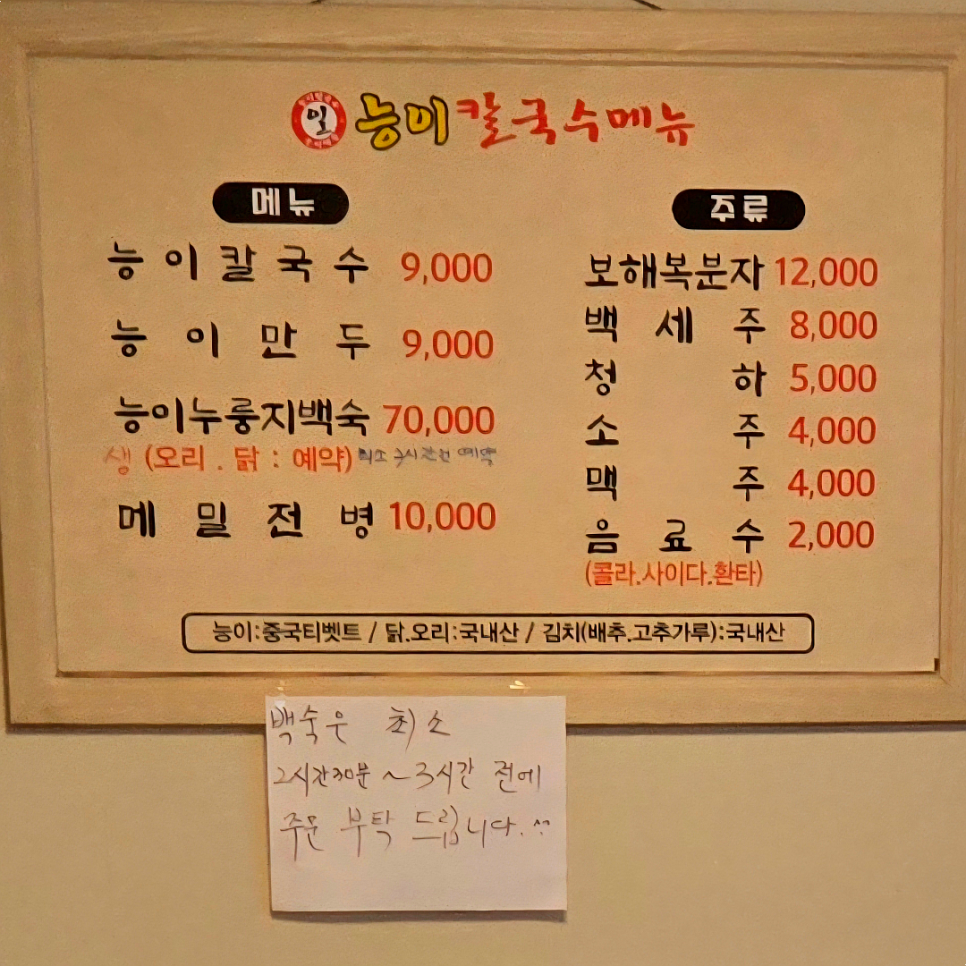 일 능이칼국수메뉴
메뉴
능이칼국수 9,000
능이만두 9,000
능이누룽지백숙 70,000
생 (오리 . 닭 : 예약) 최소 예약
메밀전병 10,000
주류
보해복분자 12,000
백세주 8,000
청하 5,000
소주 4,000
맥주 4,000
음료수 2,000
(콜라.사이다.환타)
능이:중국티벳트 / 닭.오리:국내산 / 김치(배추.고추가루):국내산
백숙은 최소
2시간30분 ~ 3시간 전에
주문 부탁 드립니다. ^^